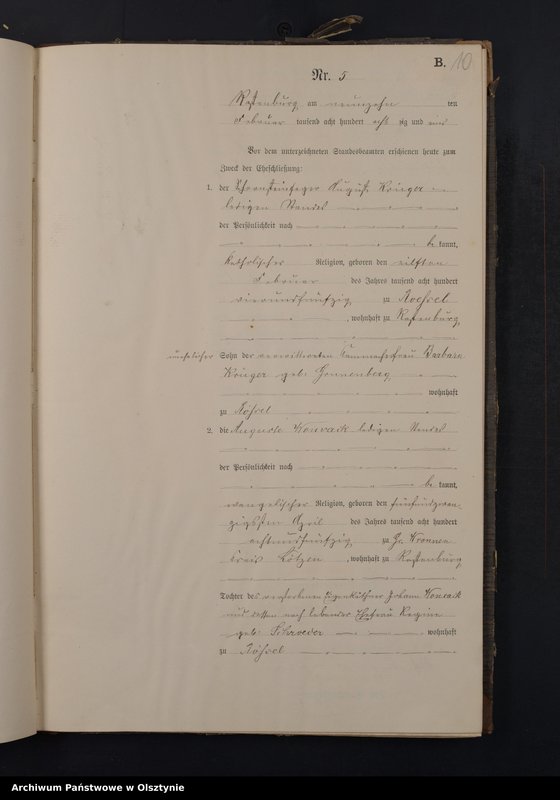 B. 10
Nr. 5
Rastenburg am neunzehn ten
Februar tausend acht hundert acht zig und eins
Vor dem unterzeichneten Standesbeamten erschienen heute zum
Zweck der Eheschließung:
1. der Schornsteinfeger August Krüger
ledigen Standes
der Persönlichkeit nach
be kannt,
katholischer Religion, geboren den eilften
Februar des Jahres tausend acht hundert
vierundfünfzig zu Roessel
, wohnhaft zu Rastenburg,
unehelicher Sohn der verwittweten Barbara
Krüger geb. Grunenberg,
wohnhaft
zu Rößel
2. die Auguste Konrack ledigen Standes
der Persönlichkeit nach
be kannt,
evangelischer Religion, geboren den fünfundzwan
zigsten April des Jahres tausend acht hundert
achtundfünfzig zu Gr. Wronnen
Kreis Lötzen , wohnhaft zu Rastenburg,
Tochter des verstorbenen Eigenkäthner Johann Konrack
und dessen noch lebender Ehefrau Regine
geb. Schroeder , wohnhaft
zu Rößel
Archiwum Państwowe w Olsztynie